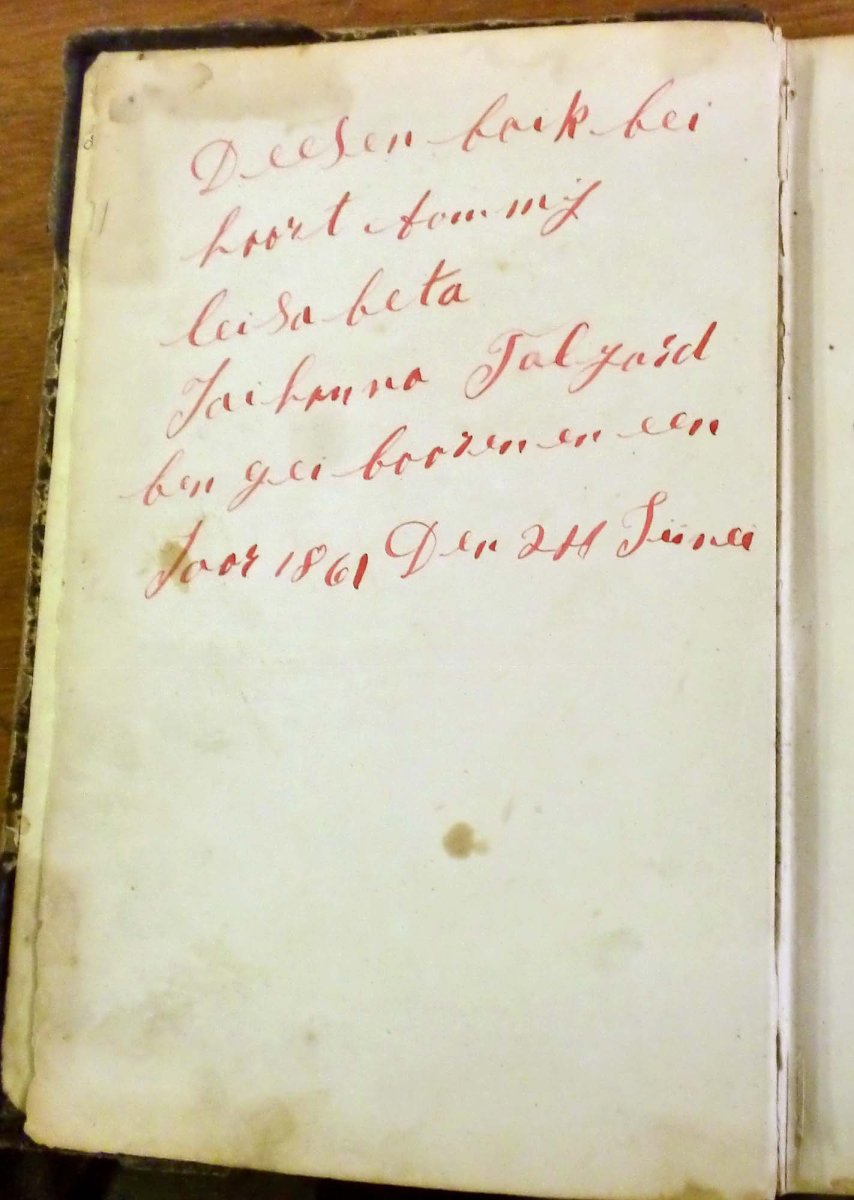 Deesen boik bei
hoort tom mij
leisabeta
Joihanna Taljard
ben gei booren en een
Joor 1861 Den 24 Junei